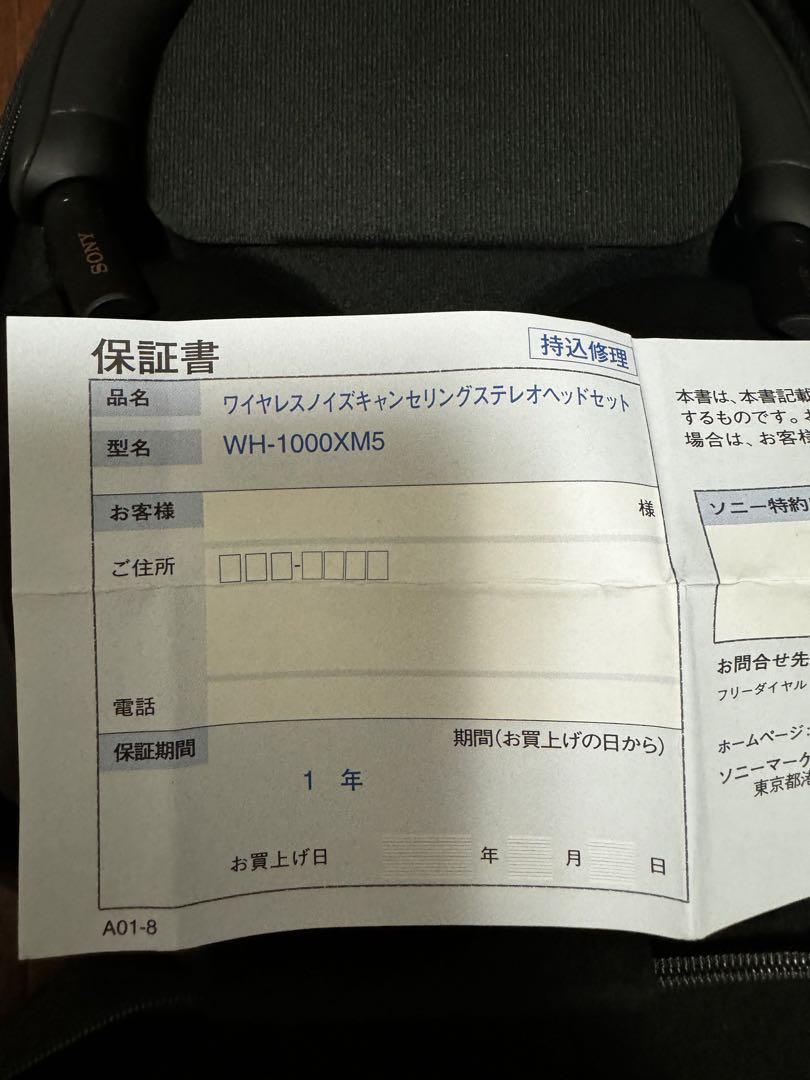 SONY
保証書
持込修理
品名 ワイヤレスノイズキャンセリングステレオヘッドセット
型名 WH-1000XM5
お客様 様
ご住所 □□□-□□□□
電話
保証期間 期間(お買上げの日から)
1 年
お買上げ日 年 月 日
A01-8
本書は、本書記載
するものです。お
場合は、お客様
ソニー特約
お問合せ先
フリーダイヤル
ホームページ:
ソニーマーケ
東京都港